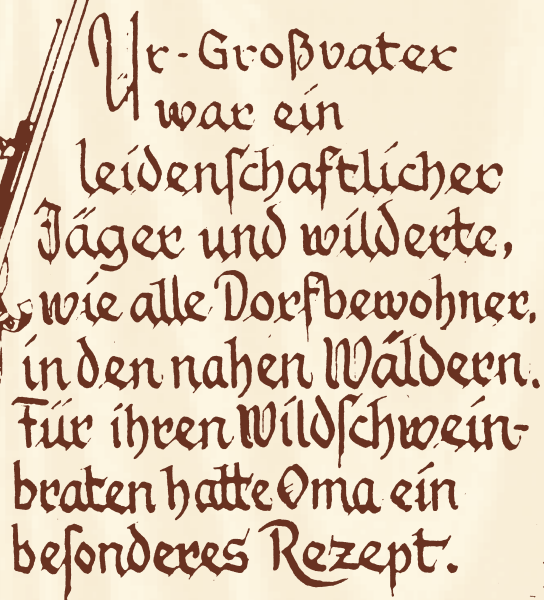 Ur-Großvater
war ein
leidenſchaftlicher
Jäger und wilderte,
wie alle Dorfbewohner,
in den nahen Wäldern.
Für ihren Wildſchwein-
braten hatte Oma ein
beſonderes Rezept.